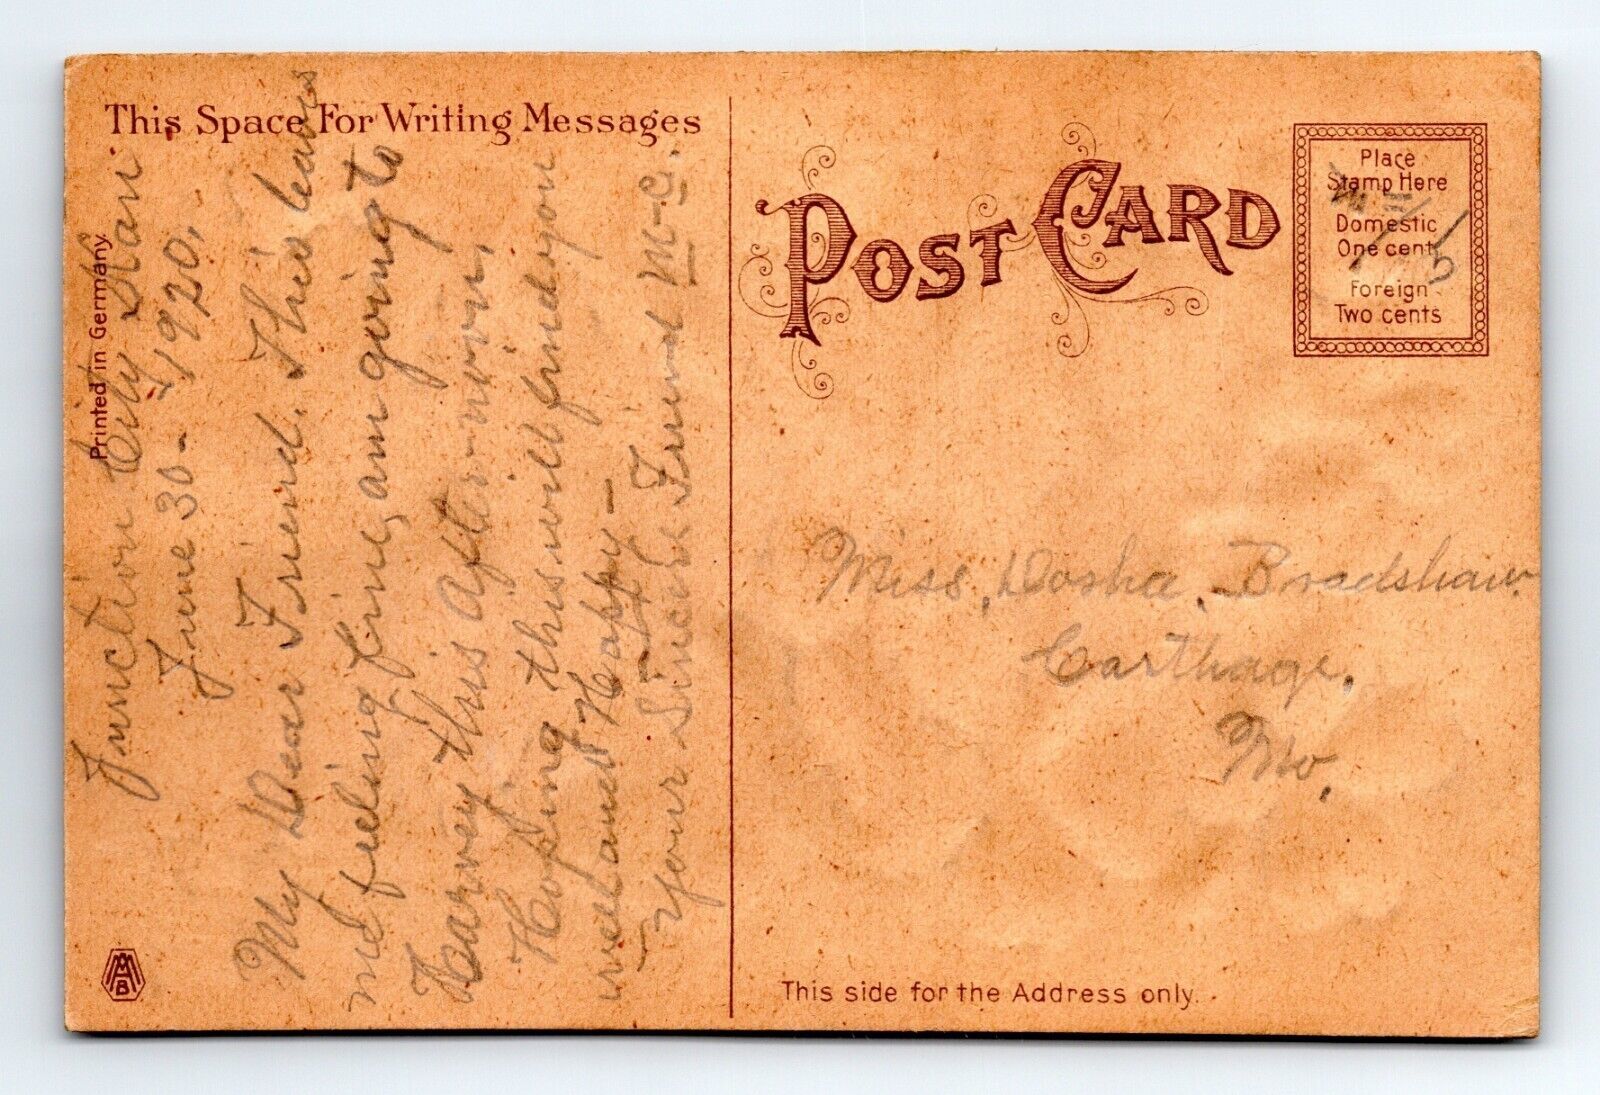 This Space For Writing Messages
Printed in Germany
Junction City Kan
June 30-1920.
My Dear Friend. This leaves
me feeling fine, am going to
Harvey this After-noon,
Hoping this will find you
well and Happy-
Your Sincere Friend M-C.
MAB
POST CARD
Place
Stamp Here
Domestic
One cent
Foreign
Two cents
Miss, Dosha, Bradshaw.
Carthage,
Mo,
This side for the Address only.